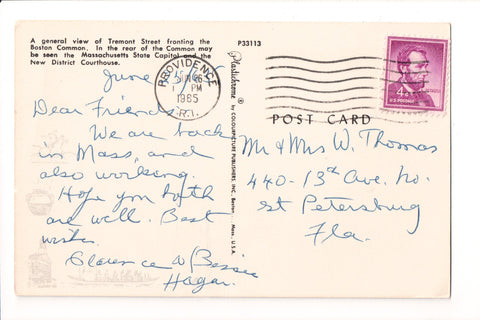 A general view of Tremont Street fronting the
Boston Common. In the rear of the Common may
be seen the Massachusetts State Capitol and the
New District Courthouse.
P33113
June
PROVIDENCE
PM
1965
R.I.
4¢
U.S. POSTAGE
Plastichrome ® by COLOURPICTURE PUBLISHERS, INC., Boston, Mass., U.S.A.
POST CARD
Dear Friends
We are back
in Mass, and
also working.
Hope you both
are well. Best
wishes.
Clarence & Bessie
Hagar
Mr & Mrs W. Thomas
440-13th Ave. No.
St Petersburg
Fla.